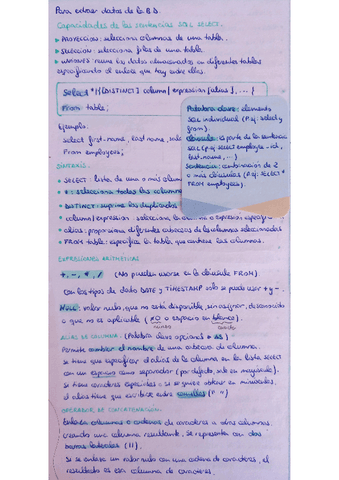 Para extraer datos de la B.D.
Capacidades de las sentencias SQL SELECT.
• PROYECCION: selecciona columnas de una tabla.
• SELECCION: selecciona filas de una tabla.
• UNIONES: reune los datos almacenados en diferentes tablas
especificando el enlace que hay entre ellas.
Select *|{[DISTINCT] column|expression [alias], ...}
From table;
Palabra clave: elemento
SQL individual (P.ej: select y
from).
Cláusula: es parte de la sentencia
SQL (p.ej select employee_id,
last_name, ...)
Sentencia: combinación de 2
o más cláusulas (P.ej: Select *
FROM employees).
Ejemplo:
select first_name, last_name,
From employees;
SINTAXIS.
• SELECT: lista de una o más colum
• *: selecciona todas las column
• DISTINCT: suprime los duplicados
• column/expression: selecciona la columna o expresión
• alias: proporciona diferentes cabeceras de las columnas seleccionadas
• FROM table: especifica la tabla que contiene las columnas.
EXPRESIONES ARITMETICAS
+, -, *, / (No pueden usarse en la cláusula FROM)
Con los tipos de dato DATE y TIMESTAMP solo se puede usar + y -.
NULL: valor nulo, que no está disponible, sin asignar, desconocido
o que no es aplicable (≠ 0 o espacio en blanco).
ALIAS DE COLUMNA. (Palabra clave opcional → AS)
Permite cambiar el nombre de una cabecera de columna.
se tiene que especificar el alias de la columna en la lista SELECT
con un espacio como separador (por defecto, sale en mayuscula).
se tiene caracteres especiales o si se quiere obtener en minusculas,
el alias tiene que escribirse entre comillas (" ")
OPERADOR DE CONCATENACION.
Enlaza columnas o cadenas de caracteres a otras columnas,
creando una columna resultante, se representa con dos
barras verticales (||).
Si se enlaza un valor nulo con una cadena de caracteres, el
resultado es esa columna de caracteres.